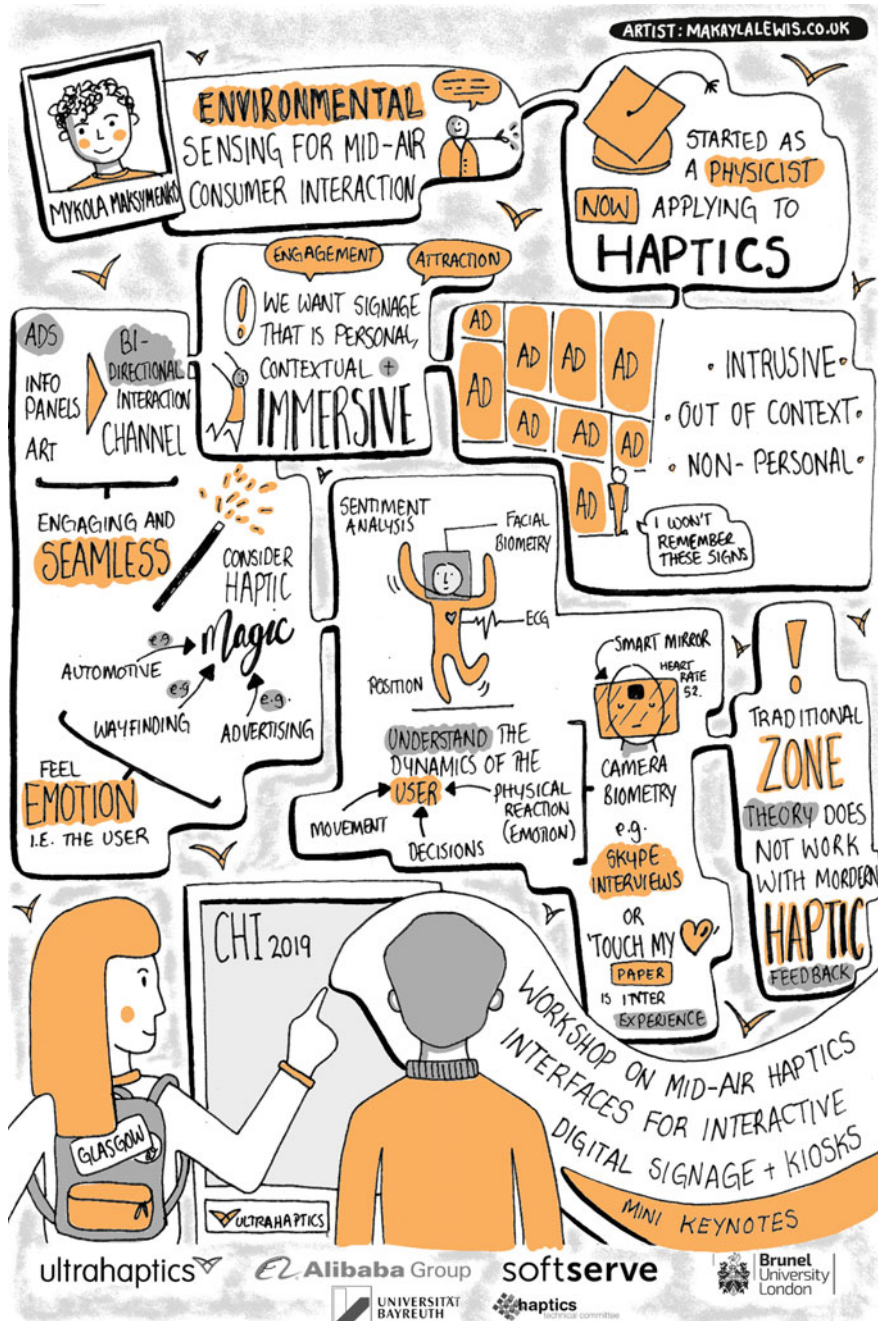 ARTIST: MAKAYLALEWIS.CO.UK
MYKOLA MAKSYMENKO
ENVIRONMENTAL
SENSING FOR MID-AIR
CONSUMER INTERACTION
STARTED AS
A PHYSICIST
NOW APPLYING TO
HAPTICS
ENGAGEMENT
ATTRACTION
! WE WANT SIGNAGE
THAT IS PERSONAL,
CONTEXTUAL +
IMMERSIVE
AD
AD
AD
AD
AD
AD
AD
AD
AD
• INTRUSIVE •
• OUT OF CONTEXT •
• NON-PERSONAL •
I WON'T
REMEMBER
THESE SIGNS
ADS
INFO
PANELS
ART
BI-
DIRECTIONAL
INTERACTION
CHANNEL
ENGAGING AND
SEAMLESS
CONSIDER
HAPTIC
magic
e.g
AUTOMOTIVE
e.g
WAYFINDING
e.g.
ADVERTISING
FEEL
EMOTION
I.E. THE USER
SENTIMENT
ANALYSIS
FACIAL
BIOMETRY
ECG
POSITION
UNDERSTAND THE
DYNAMICS OF THE
USER
MOVEMENT
DECISIONS
PHYSICAL
REACTION
(EMOTION)
SMART MIRROR
HEART
RATE
52.
CAMERA
BIOMETRY
e.g.
SKYPE
INTERVIEWS
OR
'TOUCH MY ♥'
PAPER
IS INTER
EXPERIENCE
!
TRADITIONAL
ZONE
THEORY DOES
NOT WORK
WITH MORDERN
HAPTIC
FEEDBACK
CHI 2019
GLASGOW
ULTRAHAPTICS
WORKSHOP ON MID-AIR HAPTICS
INTERFACES FOR INTERACTIVE
DIGITAL SIGNAGE + KIOSKS
MINI KEYNOTES
ultrahaptics
Alibaba Group
softserve
Brunel
University
London
UNIVERSITÄT
BAYREUTH
haptics
technical committee